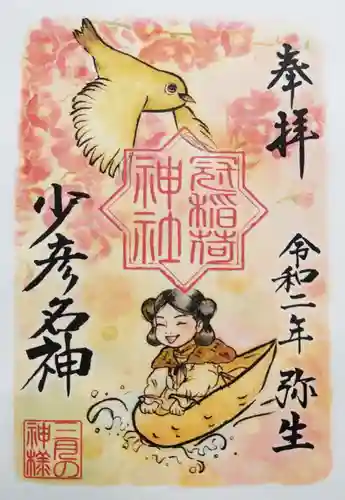 奉拝
令和二年 弥生
冠稲荷
神社
少彦名神
二月の
神様